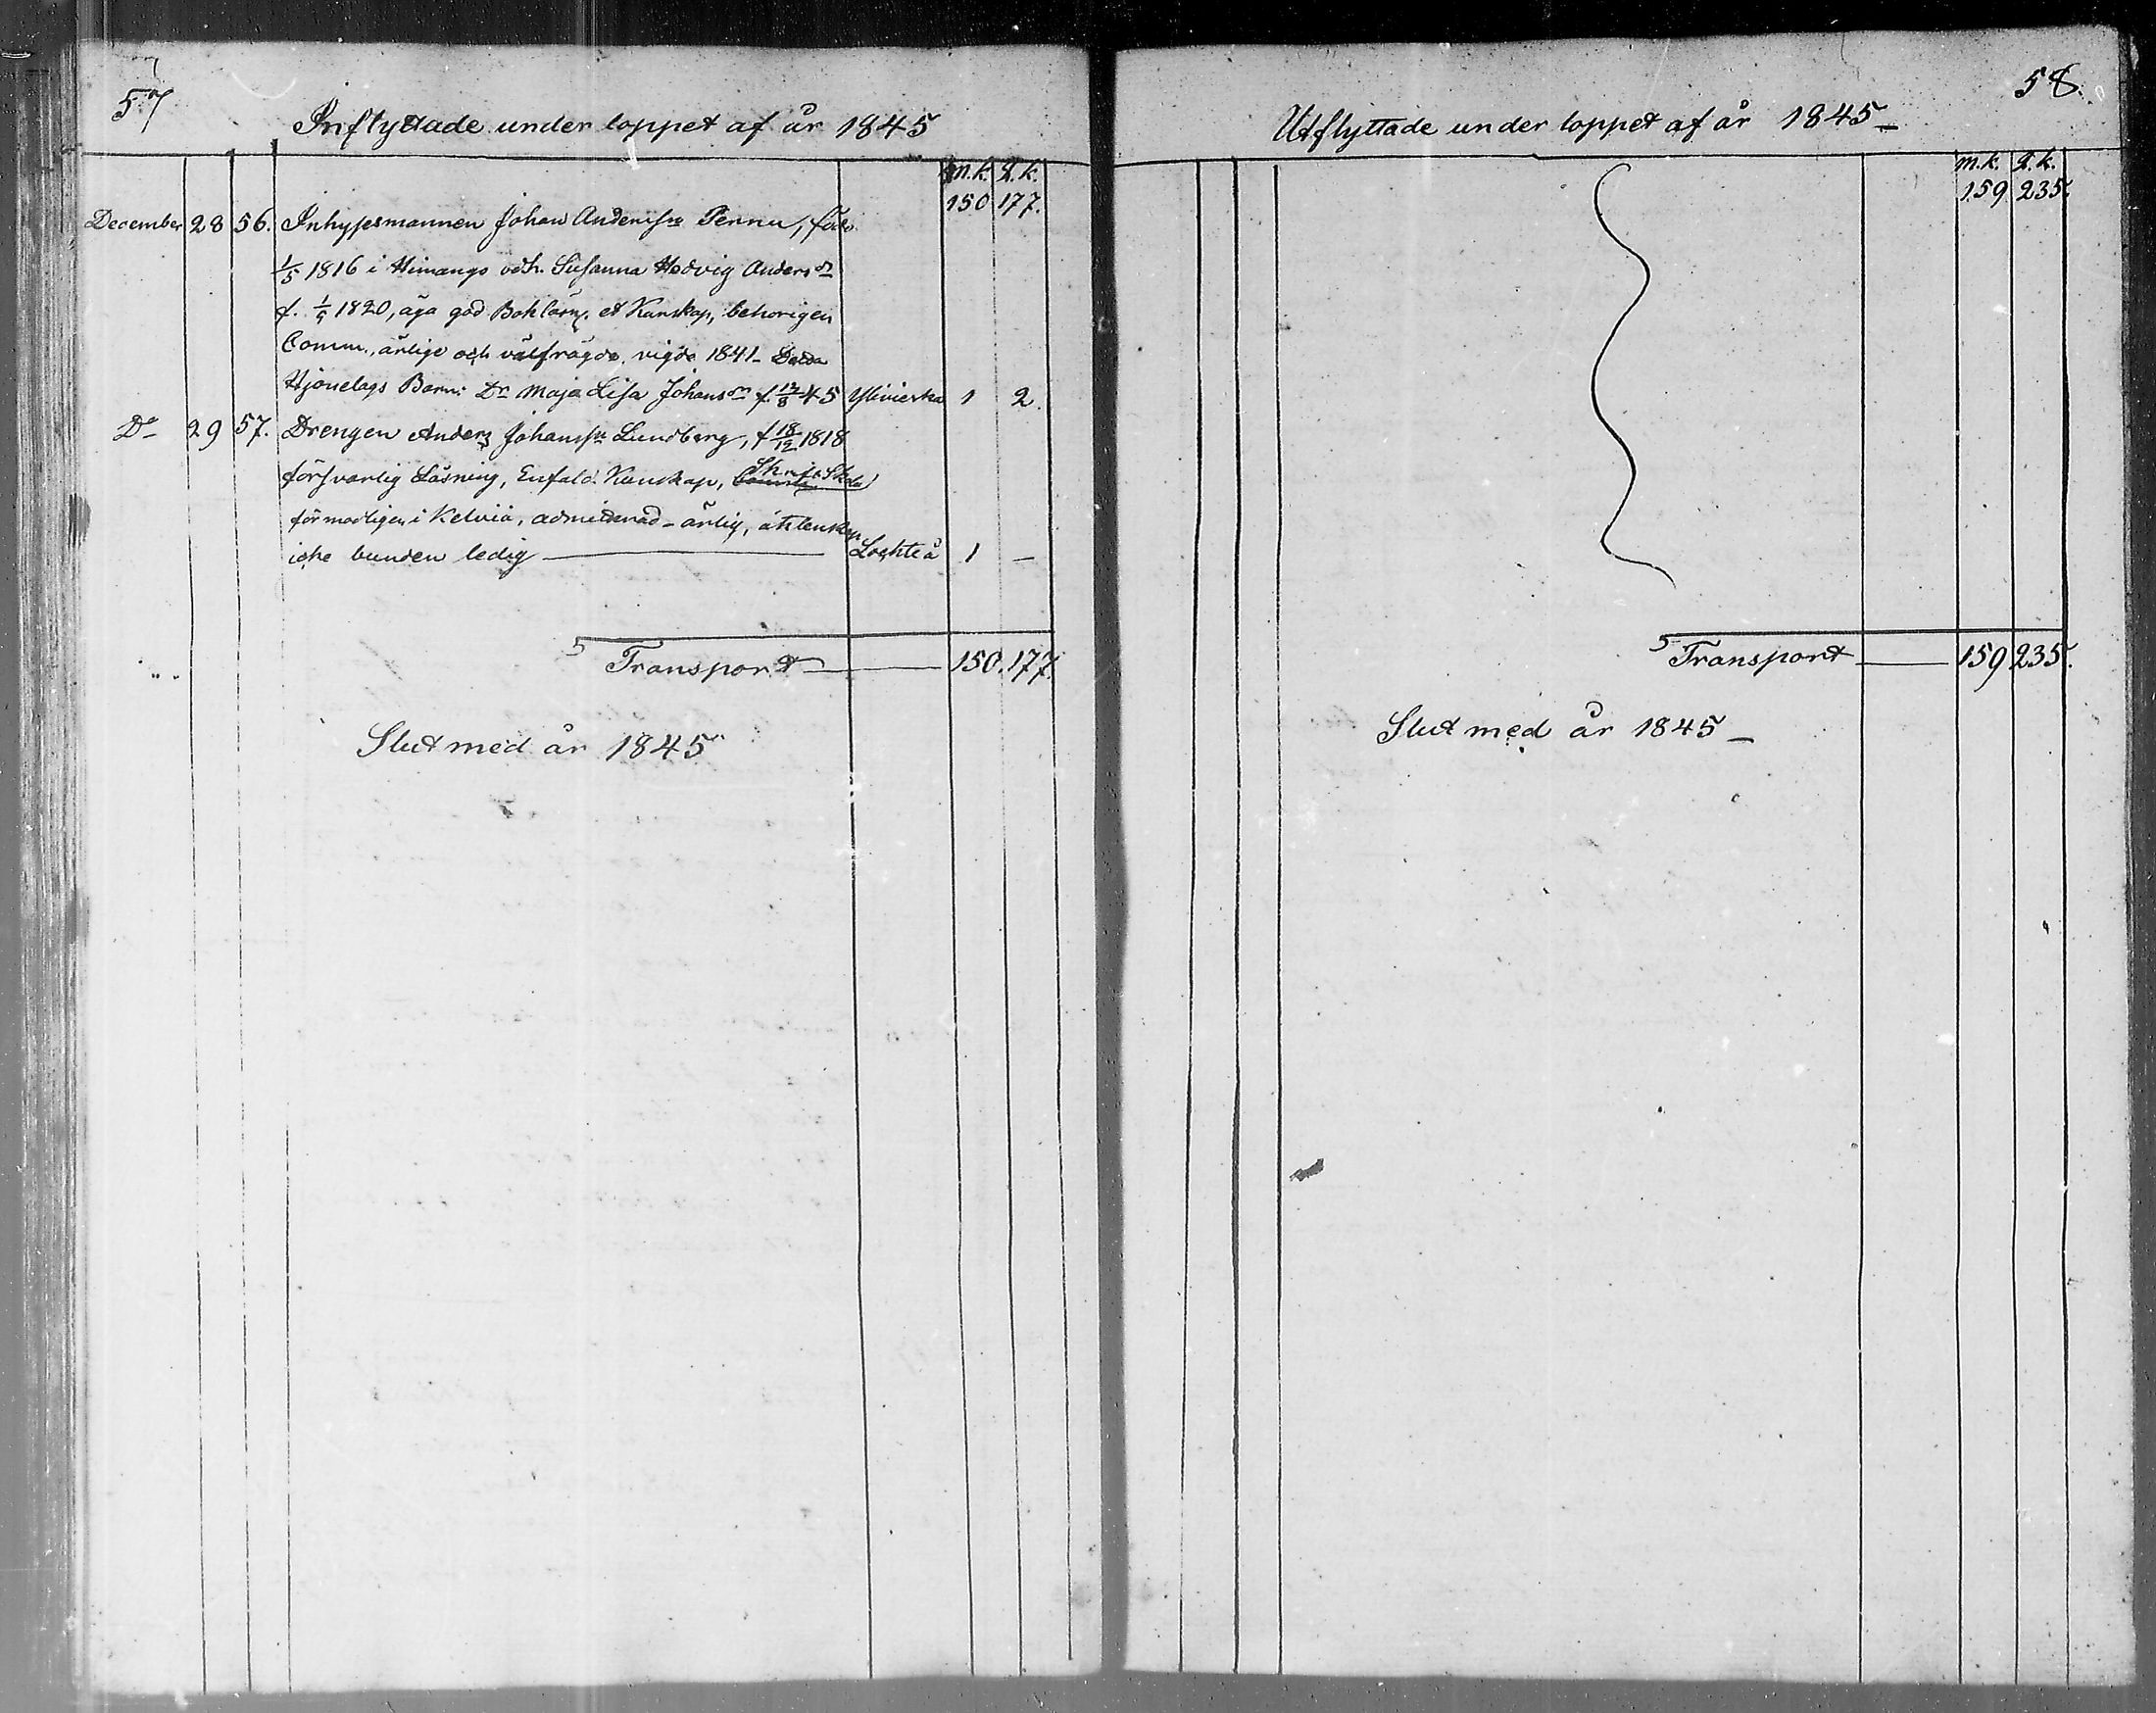 57
Inflyttade under loppet af år 1845
m.k. q.k.
150 177.
December 28 56. Inhysesmannen Johan Andersson Pennu, född
1/5 1816 i Himango och h. Susanna Hedvig Andersdr
f. 1/5 1820, äga god Bokläsn. et Kunskap, behörigen
Comm., ärlige och välfrägde, vigde 1841_ Dessa
Hjonelags Barn: Dr Maja Lisa Johansdr f. 12/8 45 Ylivieska 1 2.
Do 29 57. Drengen Anders Johansson Lundberg, f 18/12 1818
försvarlig Läsning, Enfald. Kunskap, Skrift Skola
förmodligen i Kelviå, admitterad_ ärlig, äktenskap
icke bunden ledig Lochteå 1 —
Transport 150. 177.
Slut med år 1845
58.
Utflyttade under loppet af år 1845_
m.k. q.k.
159 235.
Transport 159 235.
Slut med år 1845_